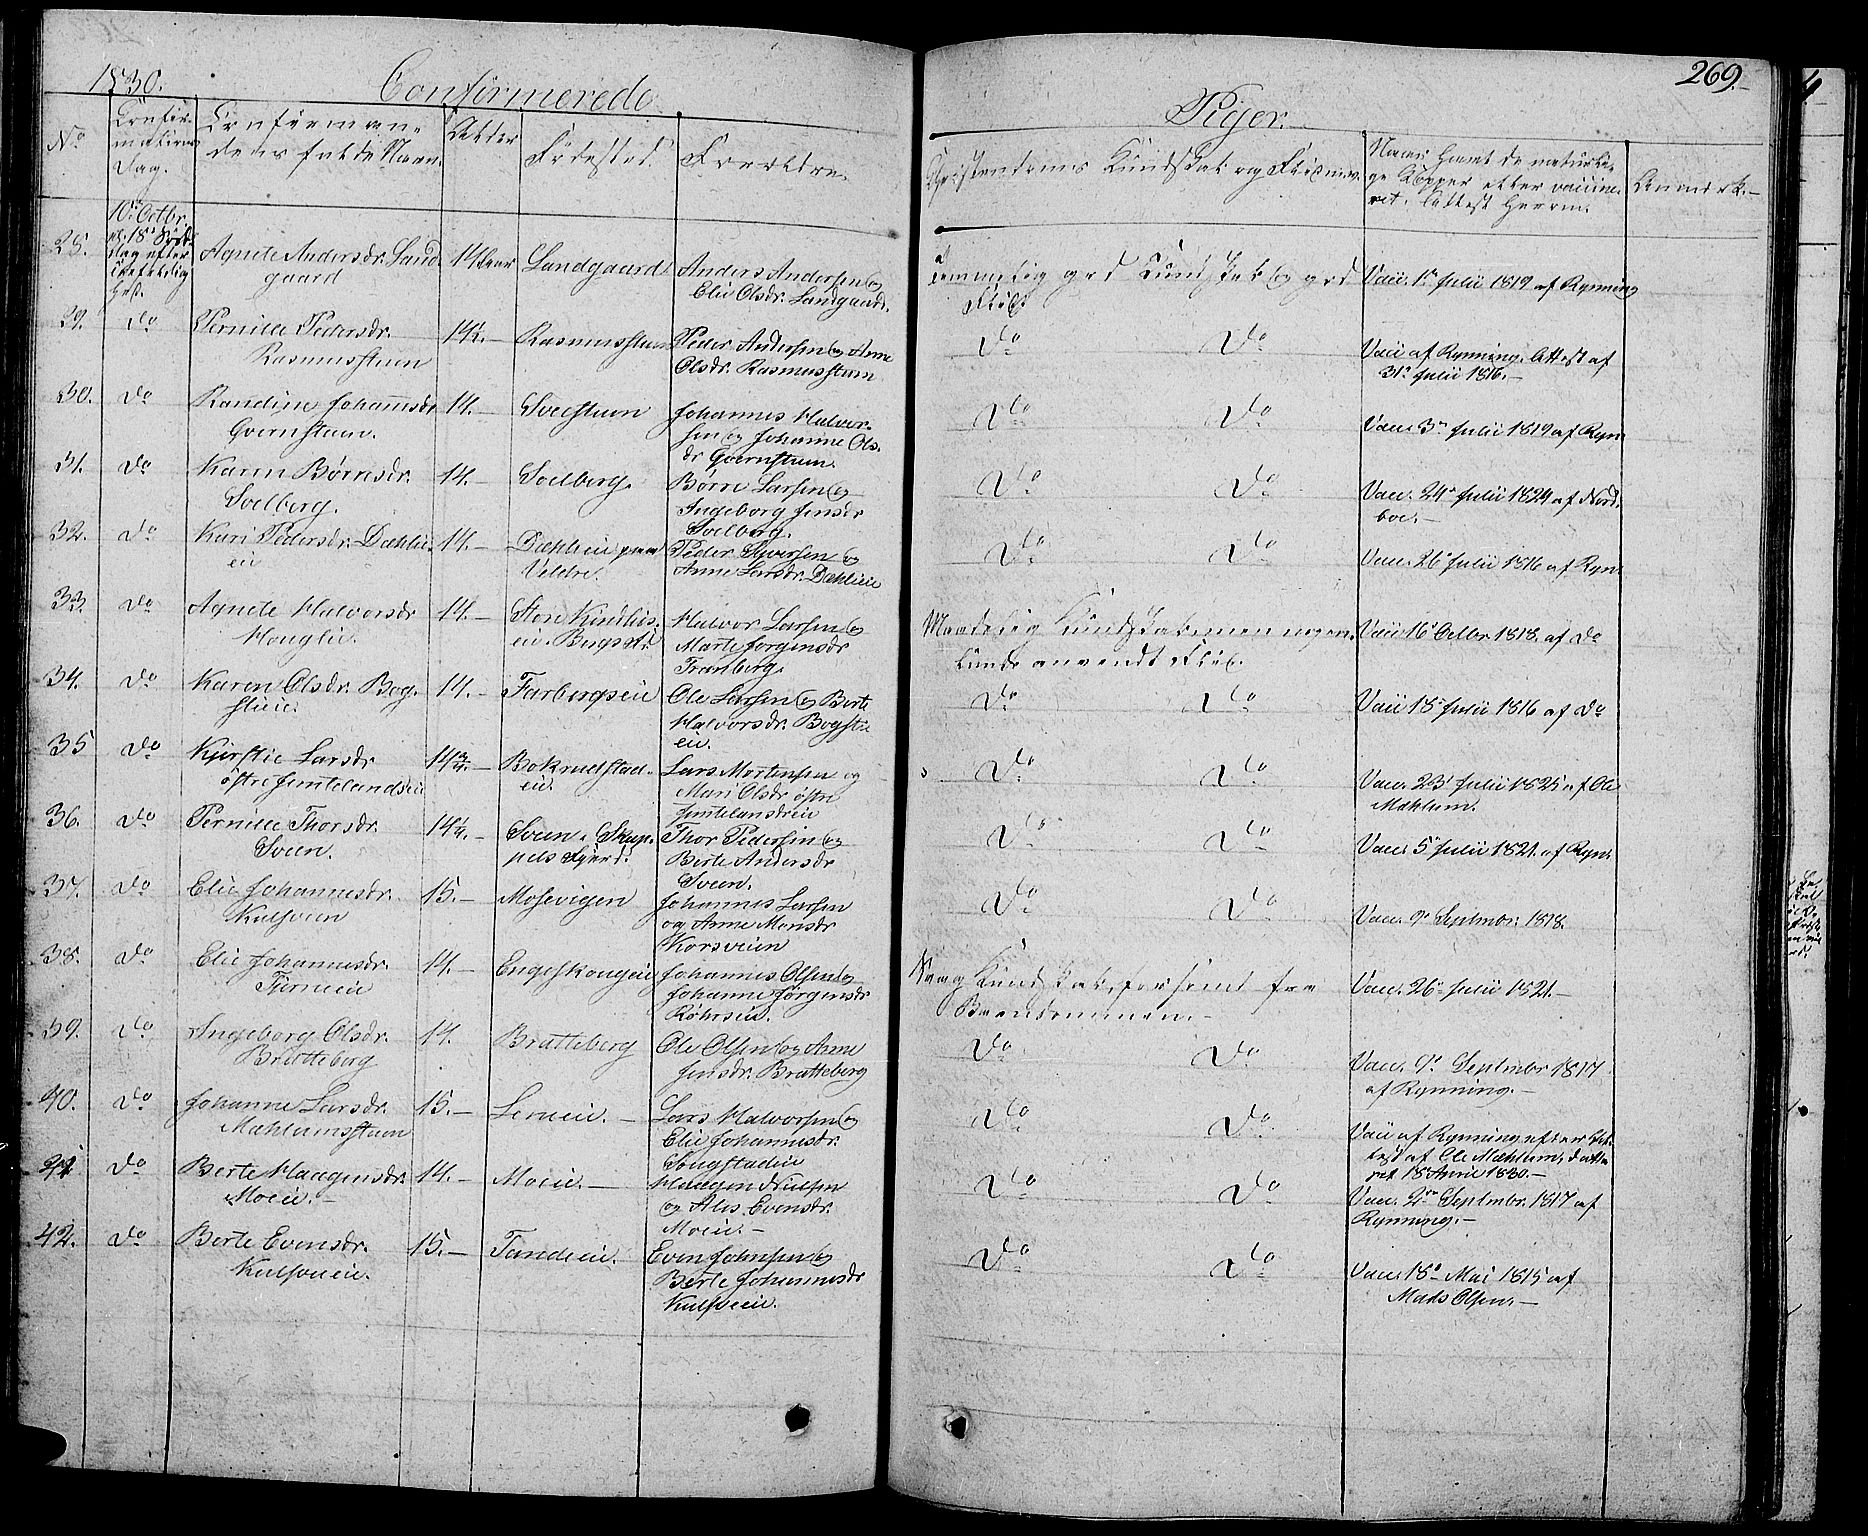 1830.
Confirmerede
Piger.
269.
No
Confir-
mations
Dag.
Confirman-
dens fulde Navn.
Alder
Fødested.
Forældre.
Christendoms Kundskab og Flid m.v.
Naar havt de naturli-
ge Kopper eller vaccine-
ret, Attest herom.
Anmærk.-
10de Octbr.
28.
Agnete Andersdr. Sand
gaard
14 Aar
Sandgaard
Anders Andersen og
Elie Olsdr. Sandgaard.
Temmelig god Kundskab og god
Flid
Vacc. 1e Julii 1819 af Rynning
29.
Do
Pernille Pedersdr.
Rasmusstuen
14½.-
Rasmusstuen
Peder Andersen og Anne
Olsdr. Rasmusstuen
Do
Do
Vacc af Rynning. Attest af
31e Julii 1816.-
30.
Do
Randine Johannsdr
Qvernstuen.
14.-
Sveestuen
Johannes Halvor-
sen og Johanne Ols-
dr Qvernstuen.
Do
Do
Vacc. 3e Julii 1819 af Ryn.
31.
Do
Karen Børresdr.
Soelberg.
14.-
Soelberg.
Børre Larsen og
Ingeborg Jensdr
Soelberg.
Do
Do
Vacc. 24e Julii 1824 af Nord-
boe.-
32.
Do
Kari Pedersdr. Dæhlie-
eie
14.-
Dæhlieie paa
Veldre.
Peder Syversen og
Anne Larsdr. Dæhlieie
Do
Do
Vacc. 26e Julii 1816 af Ryn.
33.
Do
Agnete Halvorsdr
Houglie.
14.-
Store Kindlis-
eie. Bugsti
Halvor Larsen og
Marte Jørgensdr
Tranberg.
Maadelig Kundskab, men nogen-
lunde anvendt Flid.
Vacc 16e Octbr 1818. af Do
34.
Do
Karen Olsdr. Bag-
stieie.
14.-
Farbergseie
Ole Larsen og Berte
Halvorsdr. Bagsti-
eie.
Do
Do
Vacc 18e Julii 1816 af Do
35
Do
Kjerstie Larsdr
østre Jemtelandseie
14¾.-
Bokrudstad-
eie.
Lars Mortensen og
Mari Olsdr østre
Jemtelandseie
Do
Do
Vacc. 23e Julii 1825 af Ole
Mæhlum.
36.
Do
Pernille Thorsdr.
Sveen.
14¼.-
Sveen.
Thor Pedersen og
Berte Andersdr
Sveen.
Do
Do
Vacc. 5e Julii 1821. af Ryn.
37.
Do
Elie Johannesdr.
Kulsveien
15.-
Mosevigen
Johannes Larsen
og Anne Monsdr
Korsveien
Do
Do
Vacc. 9e Septembr. 1818.
38.
Do
Elie Johannesdr.
Furueie
14.-
Engeskougeie
Johannes Olsen og
Johanne Jørgensdr
Røhrseie.
Svag Kundskab, forsømt fra
Barndommen.-
Vacc. 26e Julii 1821.-
39.
Do
Ingeborg Olsdr.
Bratteberg
14.
Bratteberg
Ole Olsen og Anne
Jensdr. Bratteberg
Do
Do
Vacc. 9e Septembr 1817
af Rynning.-
40.
Do
Johanne Larsdr.
Mæhlumsstuen
15.-
Lerueie.-
Lars Halvorsen og
Elie Johannesdr.
Sougstadeie
Do
Do
Vacc af Rynning efter At-
test af Ole Mæhlum, datte-
ret 18 April 1830.-
41
Do
Berte Haagensdr.
Moeie.-
14.-
Moeie.-
Haagen Nielsen
og Alis Evensdr.
Moeie.-
Do
Do
Vacc. 2en Septmbr. 1817 af
Rynning.-
42.
Do
Berte Evensdr.
Kulsveeie.
15.-
Tandeeie.
Even Johnsen og
Berte Johannesdr
Kulsveeie.
Do
Do
Vacc. 18e Mai 1815 af
Mads Olsen.-